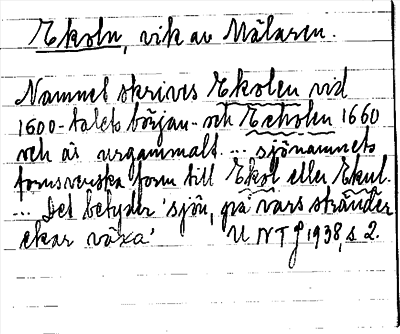 Ekoln, vik av Mälaren.
Namnet skrives Ekolen vid
1600-talets början och Echolen 1660
och är urgammalt. ... sjönamnets
fornsvenska form till Ekol eller Ekul.
... Det betyder 'sjön, på vars stränder
ekar växa' UNT 1938, s 2.